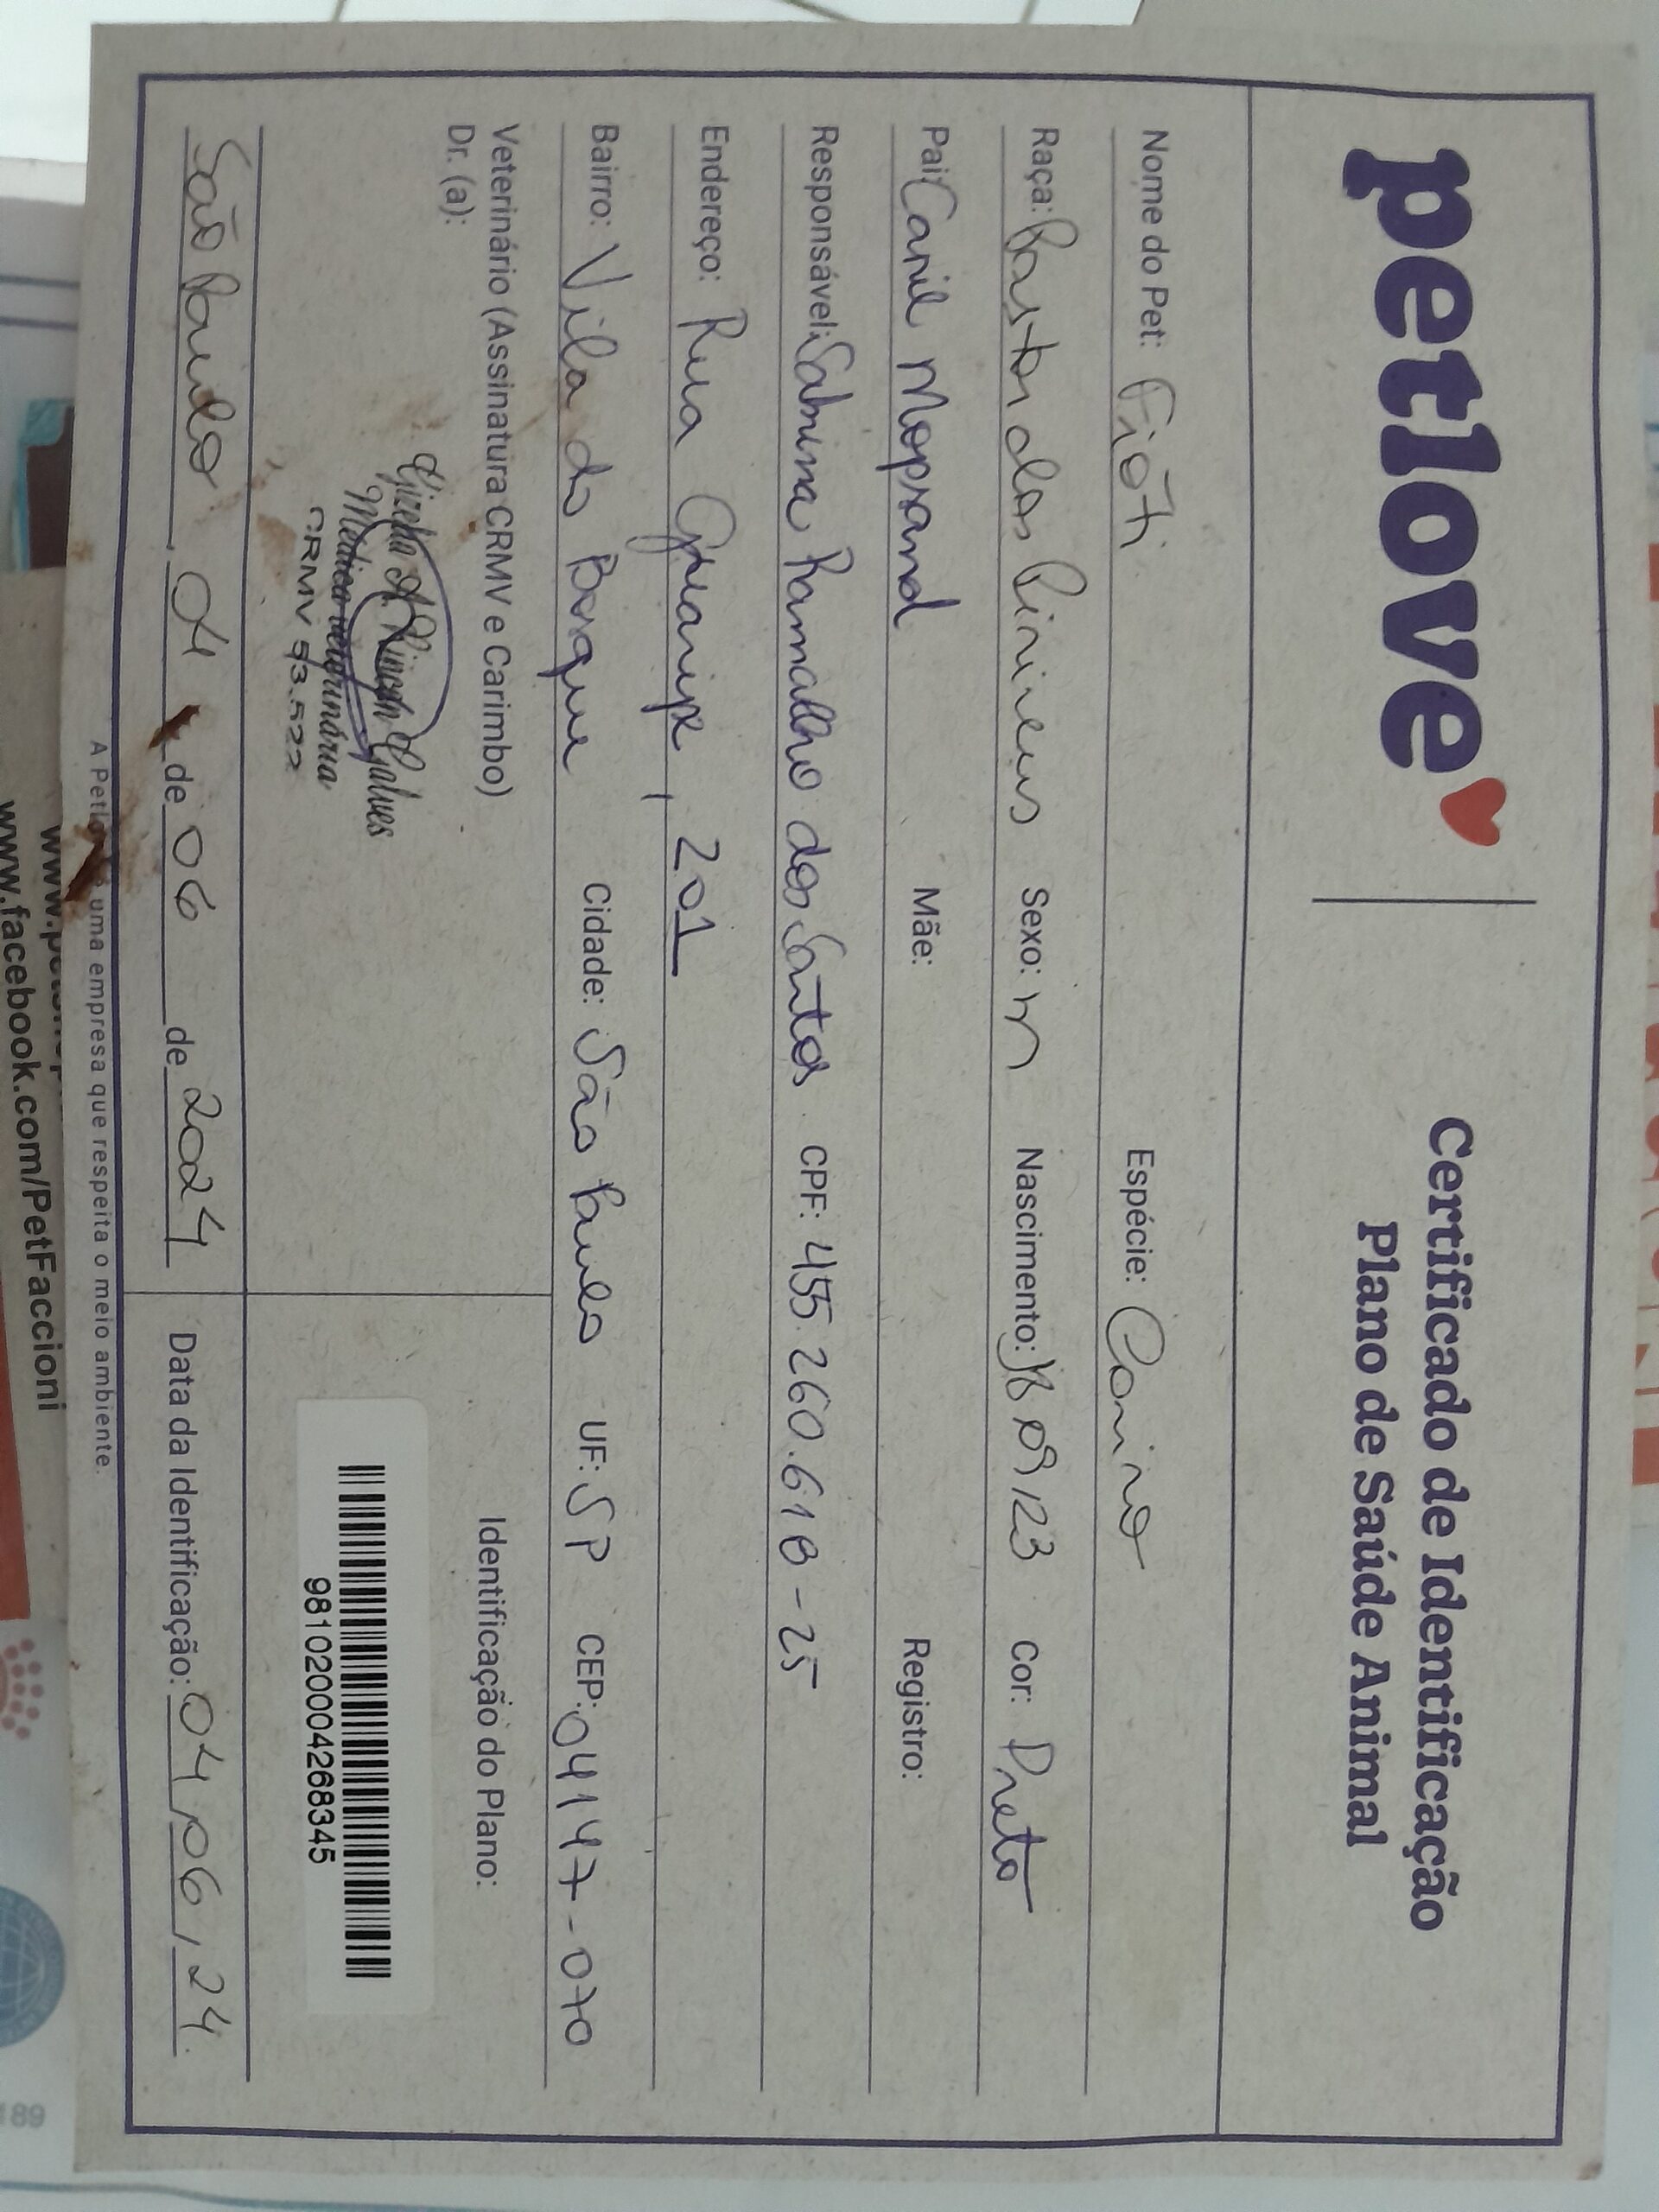 petlove
Certificado de Identificação
Plano de Saúde Animal
Nome do Pet: Fióti Espécie: Canino
Raça: Pastor dos Pirineus Sexo: M Nascimento: 18/09/23 Cor: Preto
Pai: Canil Mopsand Mãe: Registro:
Responsável: Sabrina Ramalho dos Santos CPF: 455.260.618-25
Endereço: Rua Guaripe, 201
Bairro: Vila do Bosque Cidade: São Paulo UF: SP CEP: 04147-070
Veterinário (Assinatura CRMV e Carimbo)
Dr. (a):
Galves
Médica veterinária
CRMV 53.522
Identificação do Plano:
981020004268345
São Paulo, 04 de 06 de 2024
Data da Identificação: 04/06/24
A Petlove é uma empresa que respeita o meio ambiente.
www.facebook.com/PetFaccioni
189